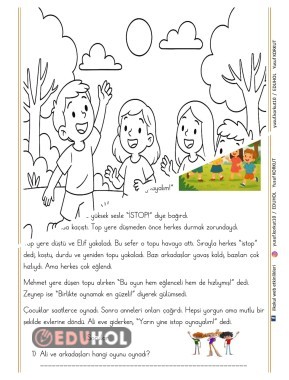 oynayalım!"
yüksek sesle "İSTOP!" diye bağırdı.
kaçıştı. Top yere düşmeden önce herkes durmak zorundaydı.
Top yere düştü ve Elif yakaladı. Bu sefer o topu havaya attı. Sırayla herkes "istop"
dedi, koştu, durdu ve yeniden topu yakaladı. Bazı arkadaşlar yavaş kaldı, bazıları çok
hızlıydı. Ama herkes çok eğlendi.
Mehmet yere düşen topu alırken "Bu oyun hem eğlenceli hem de hızlıymış!" dedi.
Zeynep ise "Birlikte oynamak en güzeli!" diyerek gülümsedi.
Çocuklar saatlerce oynadı. Sonra anneleri onları çağırdı. Hepsi yorgun ama mutlu bir
şekilde evlerine döndü. Ali eve giderken, "Yarın yine istop oynayalım!" dedi.
EDUHOL
1) Ali ve arkadaşları hangi oyunu oynadı?
yusuf.korkut10 / EDUHOL Yusuf KORKUT
Yusuf KORKUT
yusuf.korkut10 / EDUHOL
Eduhol web etkinlikleri